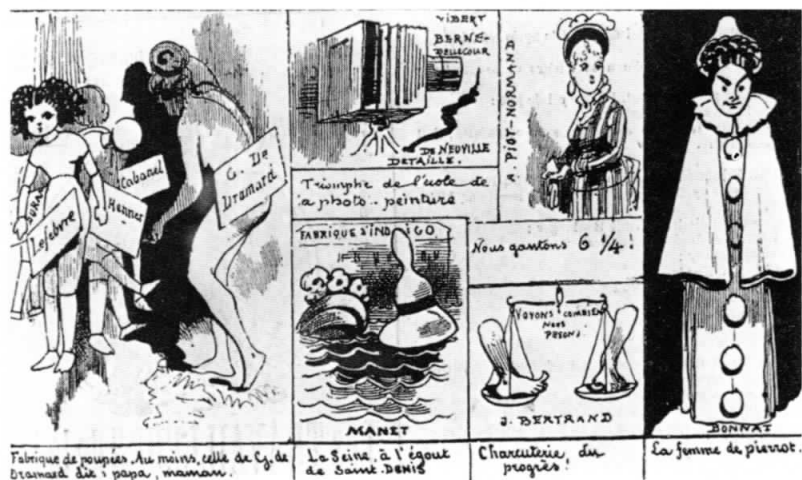 Cabanel
G. De
Dramard
JURA
Lefebvre
Henner
Fabrique de poupées. Au moins, celle de G. de
Dramard dit : papa, maman.
VIBERT
BERNE-
BELLECOUR
DE NEUVILLE
DETAILLE.
Triomphe de l'école de
la photo-peinture
FABRIQUE D'INDIGO
MANET
La Seine, à l'égout
de Saint-DENIS
A. PIOT-NORMAND
Nous gantons 6 1/4 !
VOYONS COMBIEN
NOUS
PESONS
J. BERTRAND
Charcuterie, du
progrès !
BONNAT
La femme de pierrot.